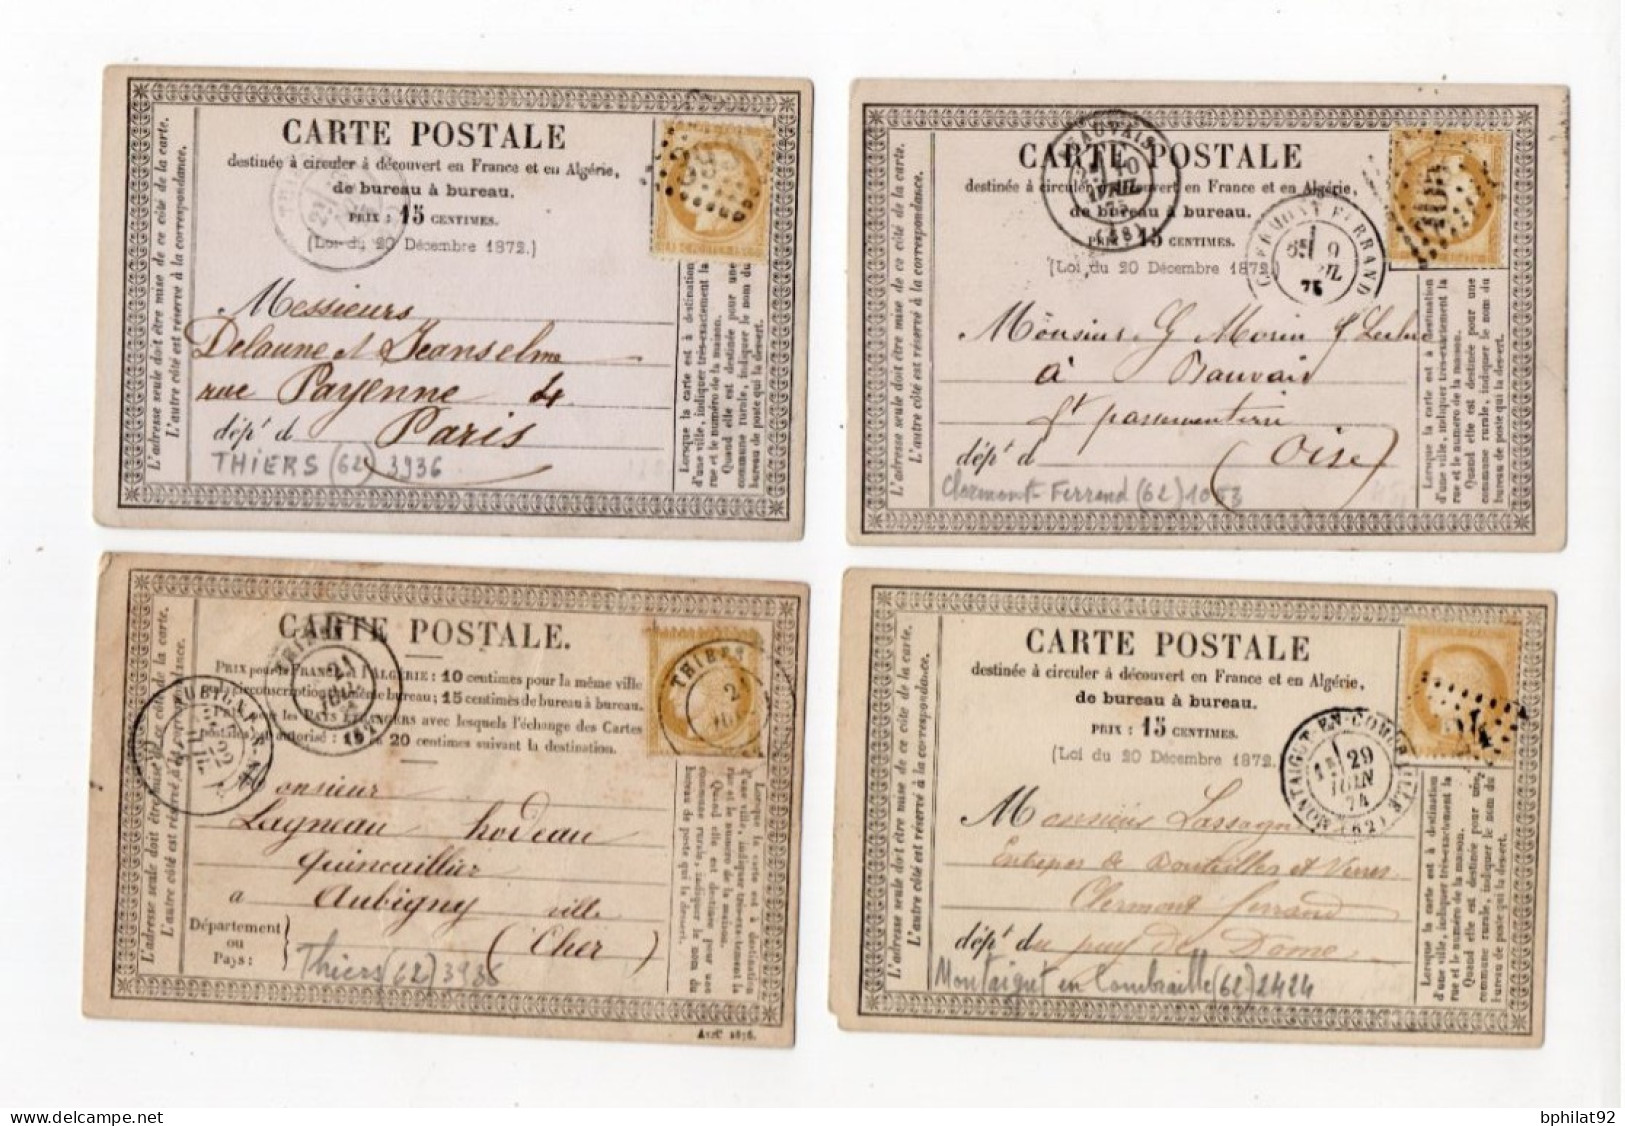 L'adresse seule doit être mise de ce côté de la carte.
L'autre côté est réservé à la correspondance.
CARTE POSTALE
destinée à circuler à découvert en France et en Algérie,
de bureau à bureau.
PRIX : 15 CENTIMES.
(Loi du 20 Décembre 1872.)
Messieurs
Delaune et Jeanselme
rue Payenne 4
dépt d Paris
THIERS (62) 3936
Lorsque la carte est à destination
d'une ville, indiquer très-exactement la
rue et le numéro de la maison.
Quand elle est destinée pour une
commune rurale, indiquer le nom du
bureau de poste qui la dessert.
L'adresse seule doit être mise de ce côté de la carte.
L'autre côté est réservé à la correspondance.
CARTE POSTALE
destinée à circuler à découvert en France et en Algérie,
de bureau à bureau.
PRIX : 15 CENTIMES.
(Loi du 20 Décembre 1872.)
BEAUVAIS
10
AVRIL
75
CLERMONT FERRAND
9
75
Monsieur G Morin
à Beauvais
passementerie
dépt d (Oise)
Clermont-Ferrand (62) 1053
Lorsque la carte est à destination
d'une ville, indiquer très-exactement la
rue et le numéro de la maison.
Quand elle est destinée pour une
commune rurale, indiquer le nom du
bureau de poste qui la dessert.
L'adresse seule doit être mise de ce côté de la carte.
L'autre côté est réservé à la correspondance.
CARTE POSTALE.
PRIX pour la FRANCE et l'ALGÉRIE : 10 centimes pour la même ville
ou circonscription du même bureau; 15 centimes de bureau à bureau.
pour les PAYS ÉTRANGERS avec lesquels l'échange des Cartes
postales est autorisé : 20 centimes suivant la destination.
THIERS
21
Monsieur
Lagneau hodeau
Quincaillier
a Aubigny ville
Département
ou
Pays :
(Cher)
Thiers (62) 3936
Lorsque la carte est à destination
d'une ville, indiquer très-exactement la
rue et le numéro de la maison.
Quand elle est destinée pour une
commune rurale, indiquer le nom du
bureau de poste qui la dessert.
Avril 1876.
L'adresse seule doit être mise de ce côté de la carte.
L'autre côté est réservé à la correspondance.
CARTE POSTALE
destinée à circuler à découvert en France et en Algérie,
de bureau à bureau.
PRIX : 15 CENTIMES.
(Loi du 20 Décembre 1872.)
MONTAIGUT-EN-COMBRAILLE (62)
29
JUIN
74
Monsieur Lassagne
Entrepos de Bouteilles et Verres
Clermont ferrand
dépt du puy de Dome
Montaigut en Combraille (62) 2424
Lorsque la carte est à destination
d'une ville, indiquer très-exactement la
rue et le numéro de la maison.
Quand elle est destinée pour une
commune rurale, indiquer le nom du
bureau de poste qui la dessert.
delcampe.net
bphilat92